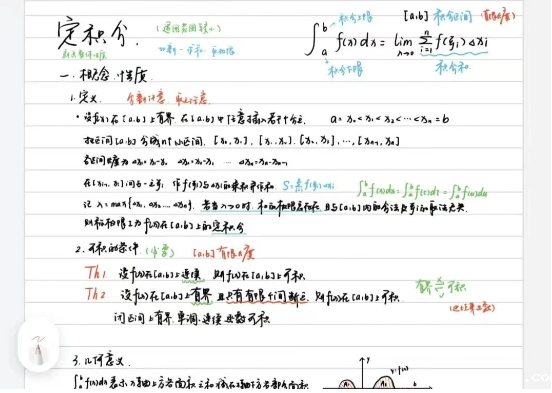 定积分.
积分上限
[a,b] 积分区间 (有限区间)
∫_a^b f(x)dx = lim_{λ→0} Σ_{i=1}^n f(ξi)Δxi
积分下限 积分和
一. 概念.性质
1.定义. 分割任意 取点任意
· 设f(x)在[a,b]上有界,在[a,b]中任意插入若干个分点 a=x₀<x₁<x₂<…<xₙ=b
把区间[a,b]分成n个小区间, [x₀,x₁], [x₁,x₂], [x₂,x₃], …, [xₙ₋₁,xₙ]
各区间长度为 Δx₁=x₁-x₀ Δx₂=x₂-x₁ … Δxₙ=xₙ-xₙ₋₁
在[xᵢ₋₁,xᵢ]间任一点ξi, 作f(ξi)与Δxi的乘积并作和 S=Σf(ξi)Δxi ∫_a^b f(x)dx=∫_a^b f(t)dt=∫_a^b f(u)du
记λ=max{Δx₁,Δx₂,…,Δxₙ}, 若当λ→0时, 和的极限总存在 且与[a,b]的分法及ξi的取法无关
则称极限I为f(x)在[a,b]上的定积分
2. 可积的条件. (有界) [a,b]有限长度
Th1 设f(x)在[a,b]上连续 则f(x)在[a,b]上可积
Th2 设f(x)在[a,b]上有界 且只有有限个间断点, 则f(x)在[a,b]上可积. 有界 可积
闭区间上有界.单调.连续函数可积
3.几何意义.
∫_a^b f(x)dx表示x轴上方
y=f(x)